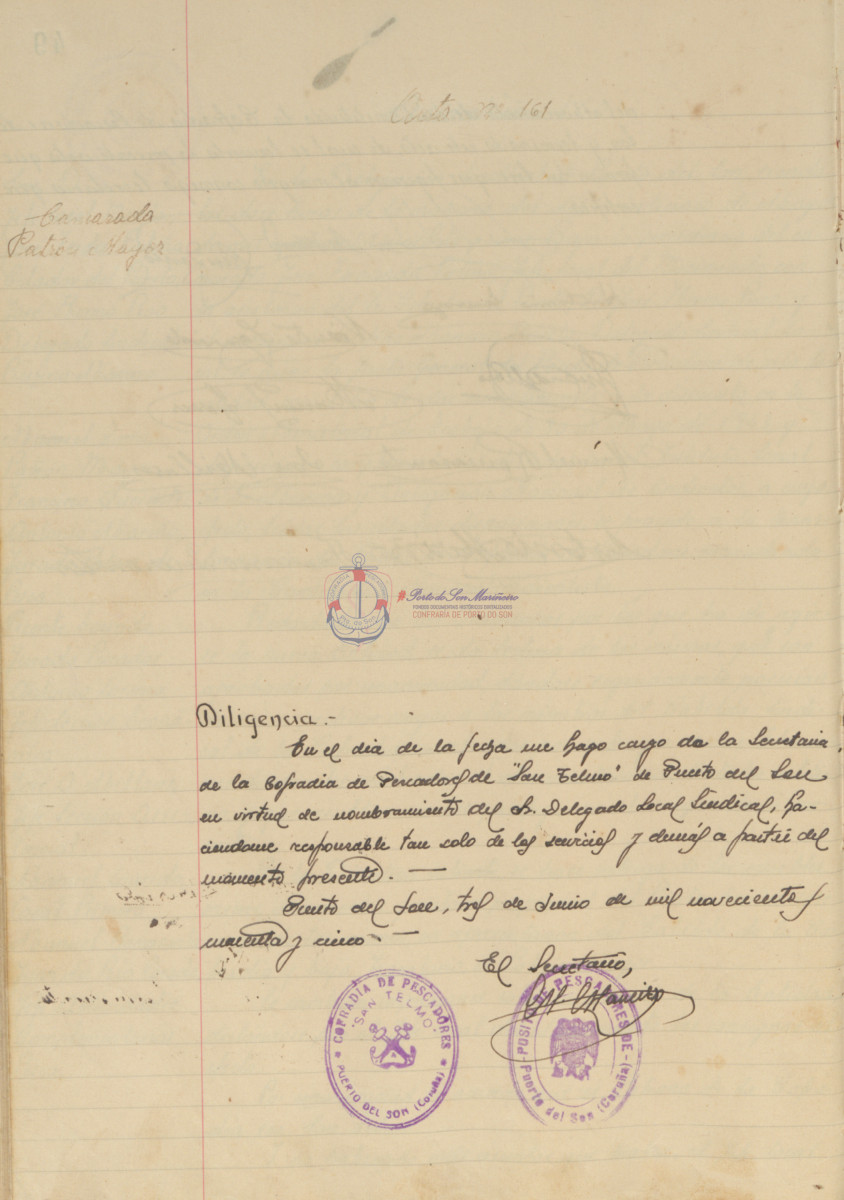 Acta nº 161
Camarada
Patrón Mayor
COFRADIA PESCADORES
Pto. do Son
#Porto do Son Mariñeiro
FONDOS DOCUMENTAIS HISTÓRICOS DIXITALIZADOS
CONFRARÍA DE PORTO DO SON
Diligencia.-
En el dia de la fecha me hago cargo de la Secretaria
de la Cofradia de Pescadores de "San Telmo" de Puerto del Son
en virtud de nombramiento del Sr. Delegado Local Sindical, ha-
ciendome responsable tan solo de los servicios y demás a partir del
momento presente. —
Puerto del Son, tres de Junio de mil novecientos
cuarenta y cinco. —
El Secretario,
COFRADIA DE PESCADORES
"SAN TELMO"
PUERTO DEL SON (Coruña)
POSITO DE PESCADORES DE
Puerto del Son (Coruña)